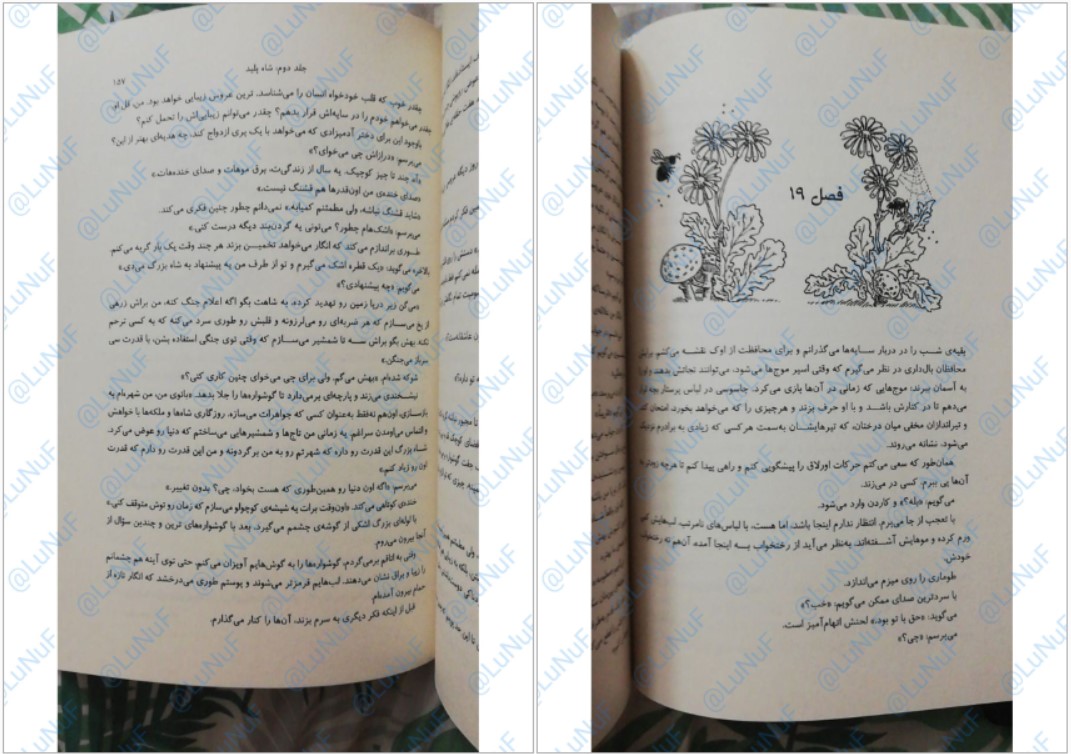 جلد دوم: شاه پلید
۱۵۷
چقدر خوب که قلب خودخواه انسان را می‌شناسد. ترین عروس زیبایی خواهد بود. من
چقدر می‌خواهم خودم را در سایه‌اش قرار بدهم؟ چقدر می‌توانم زیبایی‌اش را تحمل کنم؟
باوجود این برای دختر آدمیزادی که می‌خواهد با یک پری ازدواج کند، چه هدیه‌ای بهتر از این؟
می‌پرسم: «درازاش چی می‌خوای؟»
«آه چند تا چیز کوچیک. یه سال از زندگی‌ت. برق موهات و صدای خنده‌هات.»
«صدای خنده‌ی من اون‌قدرها هم قشنگ نیست.»
«شاید قشنگ نباشه، ولی مطمئنم کمیابه.» نمی‌دانم چطور چنین فکری می‌کند.
می‌پرسم: «اشک‌هام چطور؟ می‌تونی یه گردن‌بند دیگه درست کنی.»
طوری براندازم می‌کند که انگار می‌خواهد تخمین بزند هر چند وقت یک بار گریه می‌کنم.
بالاخره می‌گوید: «یک قطره اشک می‌گیرم و تو از طرف من یه پیشنهاد به شاه بزرگ می‌دی.»
می‌گویم: «چه پیشنهادی؟»
«می‌گن زیر دریا زمین رو تهدید کرده. به شاهت بگو اگه اعلام جنگ کنه، من براش زرهی
از یخ می‌سازم که هر ضربه‌ای رو می‌لرزونه و قلبش رو طوری سرد می‌کنه که به کسی ترحم
نکنه. بهش بگو براش سه تا شمشیر می‌سازم که وقتی توی جنگی استفاده بشن، با قدرت سی
سرباز می‌جنگن.»
شوکه شده‌ام. «بهش می‌گم. ولی برای چی می‌خوای چنین کاری کنی؟»
نیشخندی می‌زند و پارچه‌ای برمی‌دارد تا گوشواره‌ها را جلا بدهد. «بانوی من، من شهره‌ام به
بازسازی، اون‌هم نه‌فقط به‌عنوان کسی که جواهرات می‌سازه. روزگاری شاه‌ها و ملکه‌ها با خواهش
و التماس می‌اومدن سراغم. یه زمانی من تاج‌ها و شمشیرهایی می‌ساختم که دنیا رو عوض می‌کرد.
شاه بزرگ این قدرت رو داره که شهرتم رو به من برگردونه و من این قدرت رو دارم که قدرت
اون رو زیاد کنم.»
می‌پرسم: «اگه اون دنیا رو همین‌طوری که هست بخواد، چی؟ بدون تغییر.»
خنده‌ی کوتاهی می‌کند. «اون‌وقت برات یه شیشه‌ی کوچولو می‌سازم که زمان رو توش متوقف کنی.»
با لوله‌ای بزرگ اشکی از گوشه‌ی چشمم می‌گیرد. بعد با گوشواره‌های ترین و چندین سؤال از
آنجا بیرون می‌روم.
وقتی به اتاقم برمی‌گردم، گوشواره‌ها را به گوش‌هایم آویزان می‌کنم. حتی توی آینه هم چشمانم
را زیبا و براق نشان می‌دهند. لب‌هایم قرمزتر می‌شوند و پوستم طوری می‌درخشد که انگار تازه از
حمام بیرون آمده‌ام.
قبل از اینکه فکر دیگری به سرم بزند، آن‌ها را کنار می‌گذارم.
فصل ۱۹
بقیه‌ی شب را در دربار سایه‌ها می‌گذرانم و برای محافظت از اوک نقشه می‌کشم. برایش
محافظان بال‌داری در نظر می‌گیرم که وقتی اسیر موج‌ها می‌شود، می‌توانند نجاتش بدهند و او را
به آسمان ببرند؛ موج‌هایی که زمانی در آن‌ها بازی می‌کرد. جاسوسی در لباس پرستار بچه قرار
می‌دهم تا در کنارش باشد و با او حرف بزند و هرچیزی را که می‌خواهد بخورد، امتحان کند
و تیراندازان مخفی میان درختان، که تیرهایشان به‌سمت هرکسی که زیادی به برادرم نزدیک
می‌شود، نشانه می‌روند.
همان‌طور که سعی می‌کنم حرکات اورلاق را پیشگویی کنم و راهی پیدا کنم تا هرچه زودتر به
آن‌ها پی ببرم، کسی در می‌زند.
می‌گویم: «بله؟» و کاردن وارد می‌شود.
با تعجب از جا می‌پرم. انتظار ندارم اینجا باشد، اما هست، با لباس‌های نامرتب. لب‌هایش کمی
ورم کرده و موهایش آشفته‌اند. به‌نظر می‌آید از رختخواب به اینجا آمده، آن‌هم نه رختخواب
خودش.
طوماری را روی میزم می‌اندازد.
با سردترین صدای ممکن می‌گویم: «خب؟»
می‌گوید: «حق با تو بود.» لحنش اتهام‌آمیز است.
می‌پرسم: «چی؟»
@LuNuF